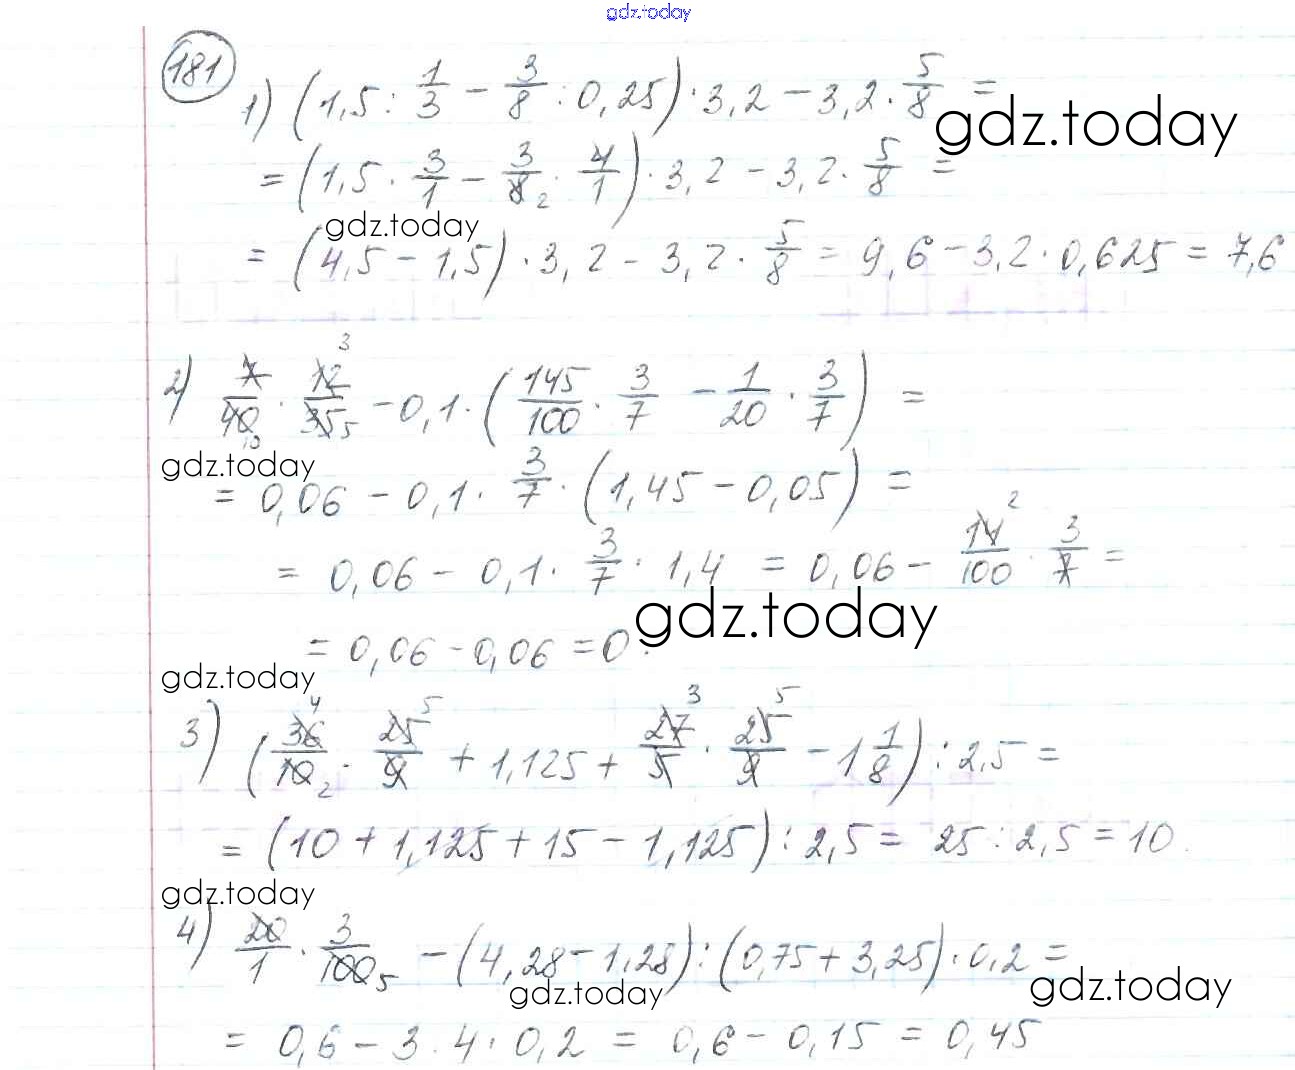 gdz.today
181
1) (1,5 : 1/3 − 3/8 : 0,25) · 3,2 − 3,2 · 5/8 =
gdz.today
= (1,5 · 3/1 − 3/8 2 · 4/1) · 3,2 − 3,2 · 5/8 =
gdz.today
= (4,5 − 1,5) · 3,2 − 3,2 · 5/8 = 9,6 − 3,2 · 0,625 = 7,6
2) 7/40 10 · 12 3/35 5 − 0,1 · (145/100 · 3/7 − 1/20 · 3/7) =
gdz.today
= 0,06 − 0,1 · 3/7 · (1,45 − 0,05) =
= 0,06 − 0,1 · 3/7 · 1,4 = 0,06 − 14 2/100 · 3/7 =
gdz.today
= 0,06 − 0,06 = 0.
gdz.today
3) (36 4/10 2 · 25 5/9 + 1,125 + 27 3/5 · 25 5/9 − 1 1/8) : 2,5 =
= (10 + 1,125 + 15 − 1,125) : 2,5 = 25 : 2,5 = 10.
gdz.today
4) 20/1 · 3/100 5 − (4,28 − 1,28) : (0,75 + 3,25) · 0,2 =
gdz.today
gdz.today
= 0,6 − 3 : 4 · 0,2 = 0,6 − 0,15 = 0,45